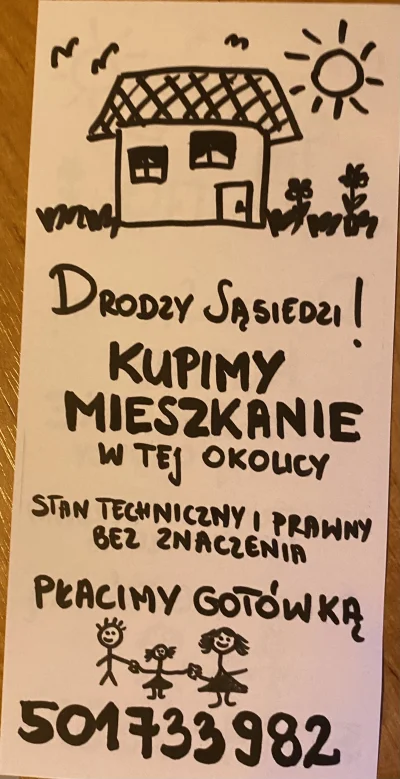 DRODZY SĄSIEDZI!
KUPIMY
MIESZKANIE
W TEJ OKOLICY
STAN TECHNICZNY I PRAWNY
BEZ ZNACZENIA
PŁACIMY GOTÓWKĄ
501733982